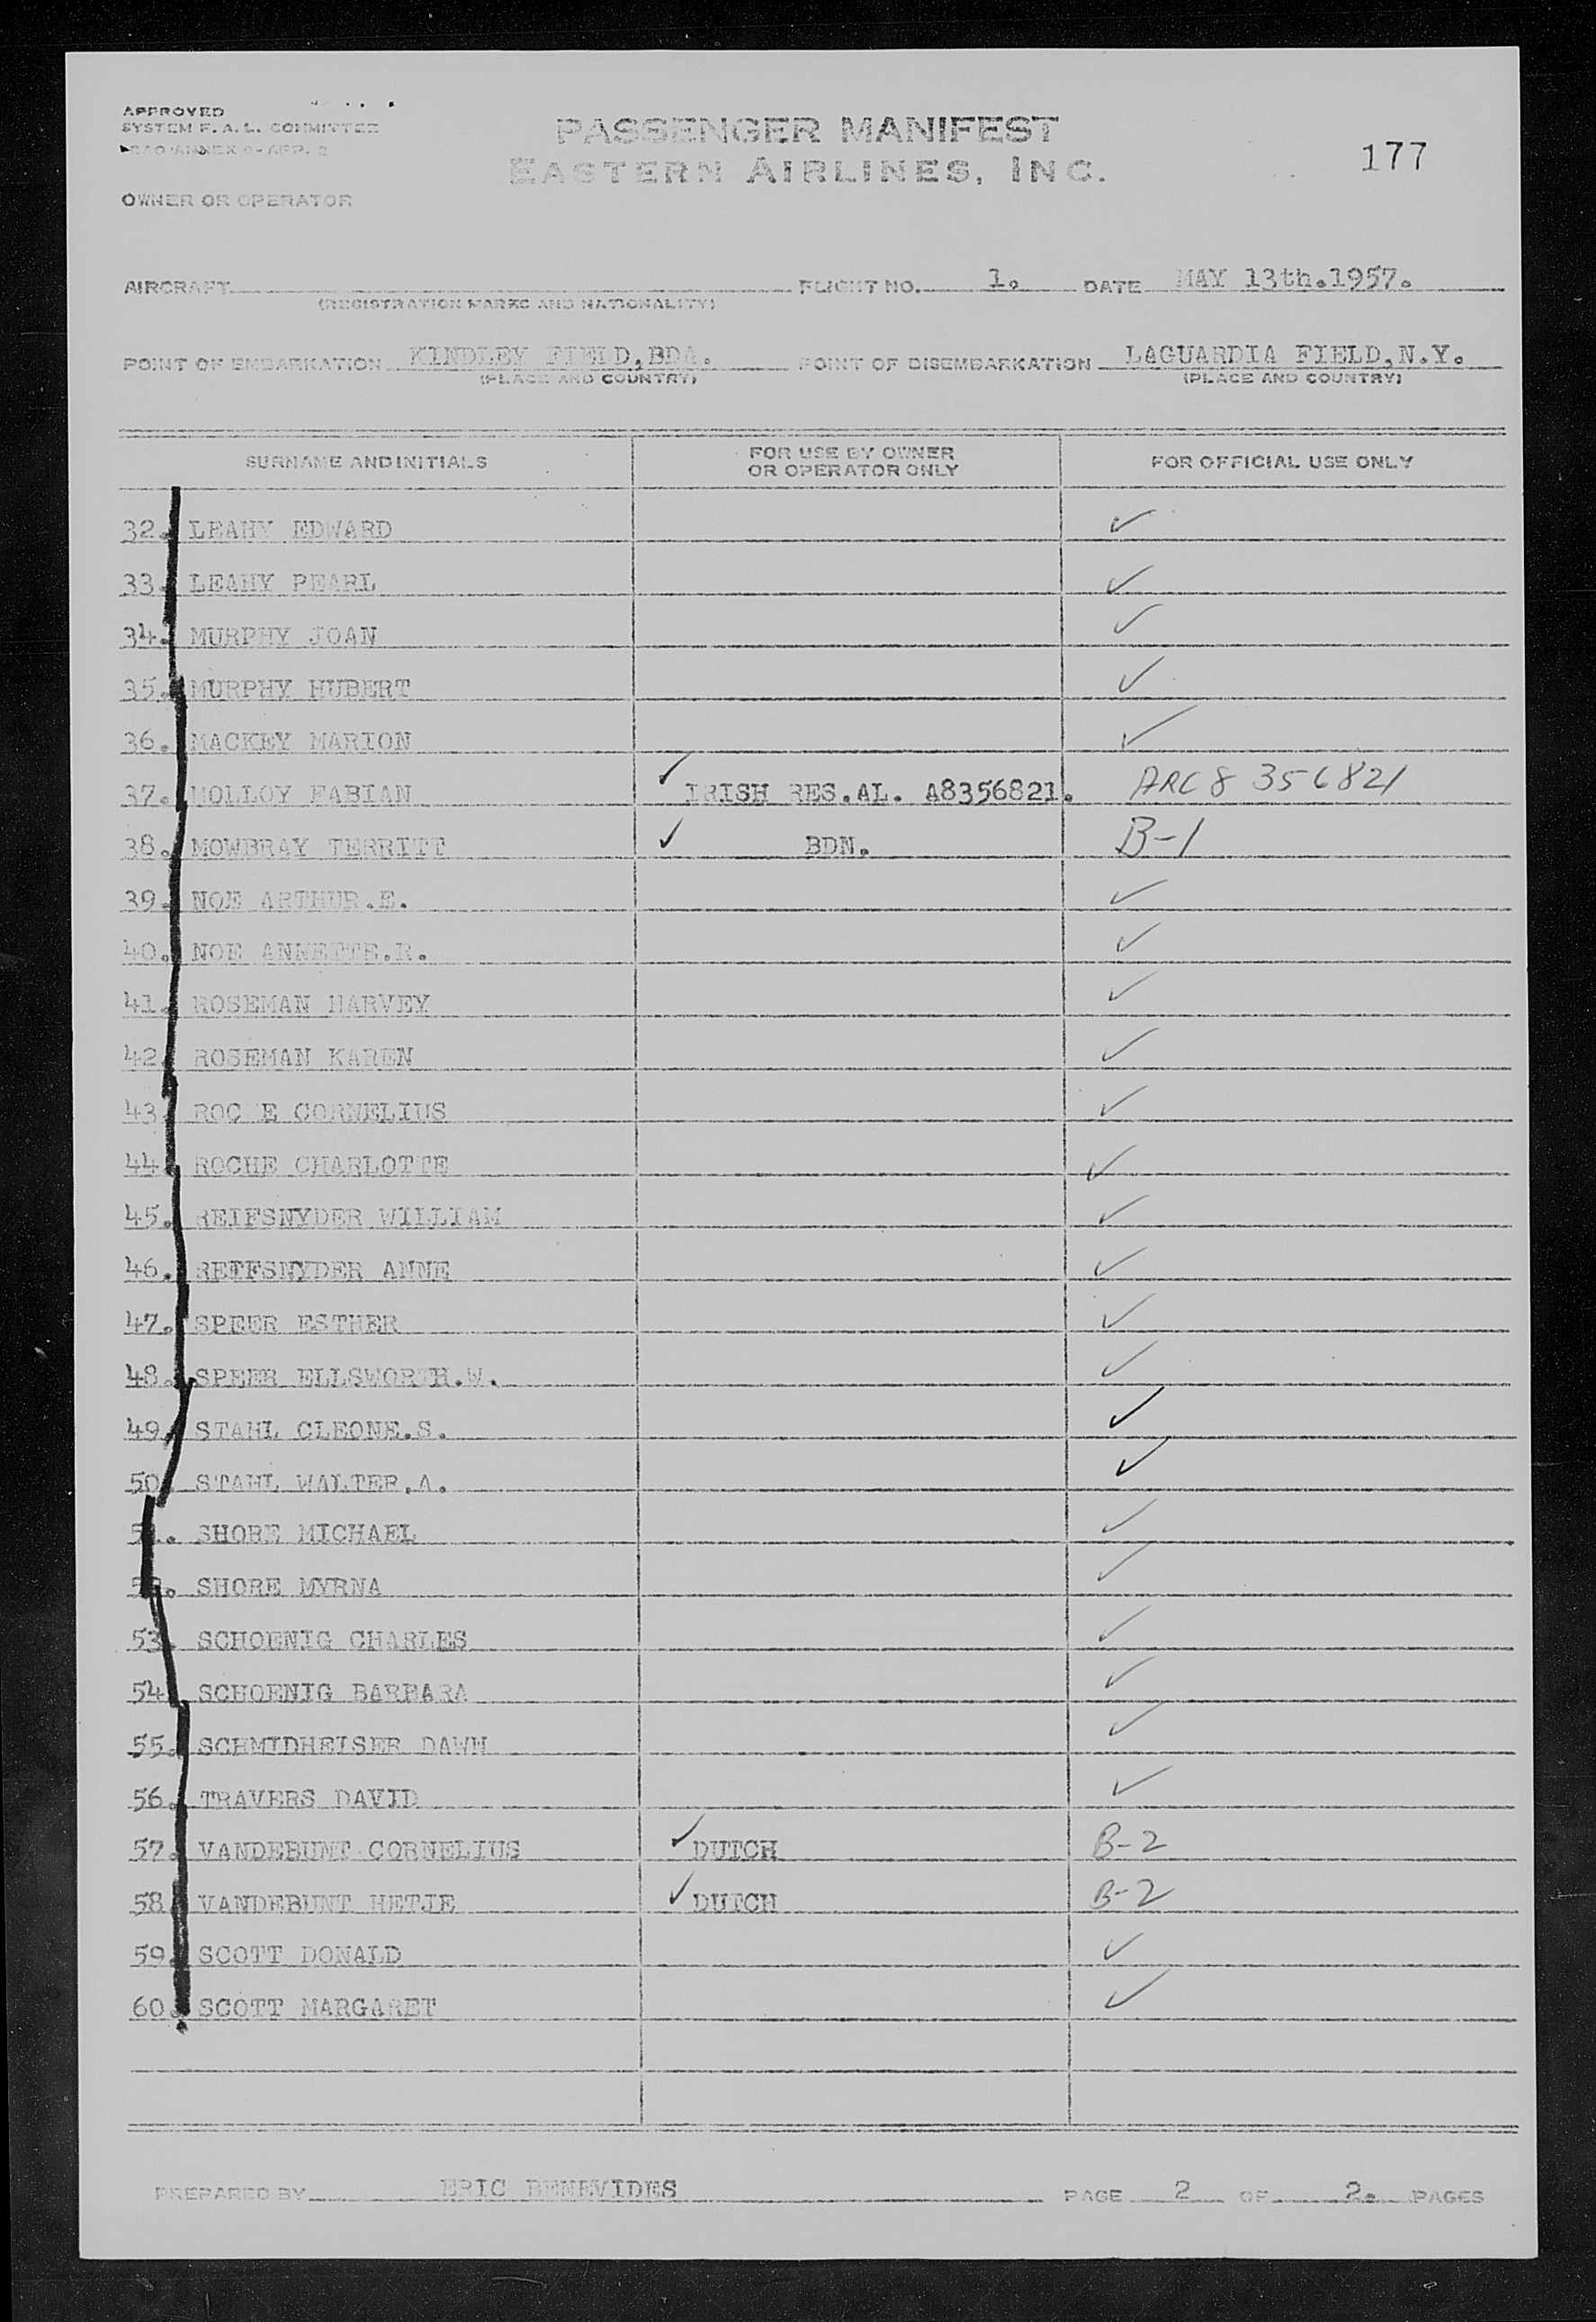 APPROVED
SYSTEM F.A.L. COMMITTEE
ICAO ANNEX 9 - APP. 2
PASSENGER MANIFEST
EASTERN AIRLINES, INC.
177
OWNER OR OPERATOR
AIRCRAFT FLIGHT NO. 1. DATE MAY 13th.1957.
(REGISTRATION MARKS AND NATIONALITY)
POINT OF EMBARKATION KINDLEY FIELD,BDA. POINT OF DISEMBARKATION LAGUARDIA FIELD,N.Y.
(PLACE AND COUNTRY) (PLACE AND COUNTRY)
SURNAME AND INITIALS FOR USE BY OWNER OR OPERATOR ONLY FOR OFFICIAL USE ONLY
32. LEAHY EDWARD ✓
33. LEAHY PEARL ✓
34. MURPHY JOAN ✓
35. MURPHY HUBERT ✓
36. MACKEY MARION ✓
37. MOLLOY FABIAN ✓ IRISH RES.AL. A8356821. ARC 8 356821
38. MOWBRAY TERRITT ✓ BDN. B-1
39. NOE ARTHUR.E. ✓
40. NOE ANNETTE.R. ✓
41. ROSEMAN HARVEY ✓
42. ROSEMAN KAREN ✓
43. ROC E CORNELIUS ✓
44. ROCHE CHARLOTTE ✓
45. REIFSNYDER WILLIAM ✓
46. REIFSNYDER ANNE ✓
47. SPEER ESTHER ✓
48. SPEER ELLSWORTH.W. ✓
49. STAHL CLEONE.S. ✓
50. STAHL WALTER.A. ✓
51. SHORE MICHAEL ✓
52. SHORE MYRNA ✓
53. SCHOENIG CHARLES ✓
54. SCHOENIG BARBARA ✓
55. SCHMIDHEISER DAWN ✓
56. TRAVERS DAVID ✓
57. VANDEBUNT CORNELIUS ✓ DUTCH B-2
58. VANDEBUNT HETJE ✓ DUTCH B-2
59. SCOTT DONALD ✓
60. SCOTT MARGARET ✓
PREPARED BY ERIC BENEVIDES PAGE 2 OF 2. PAGES